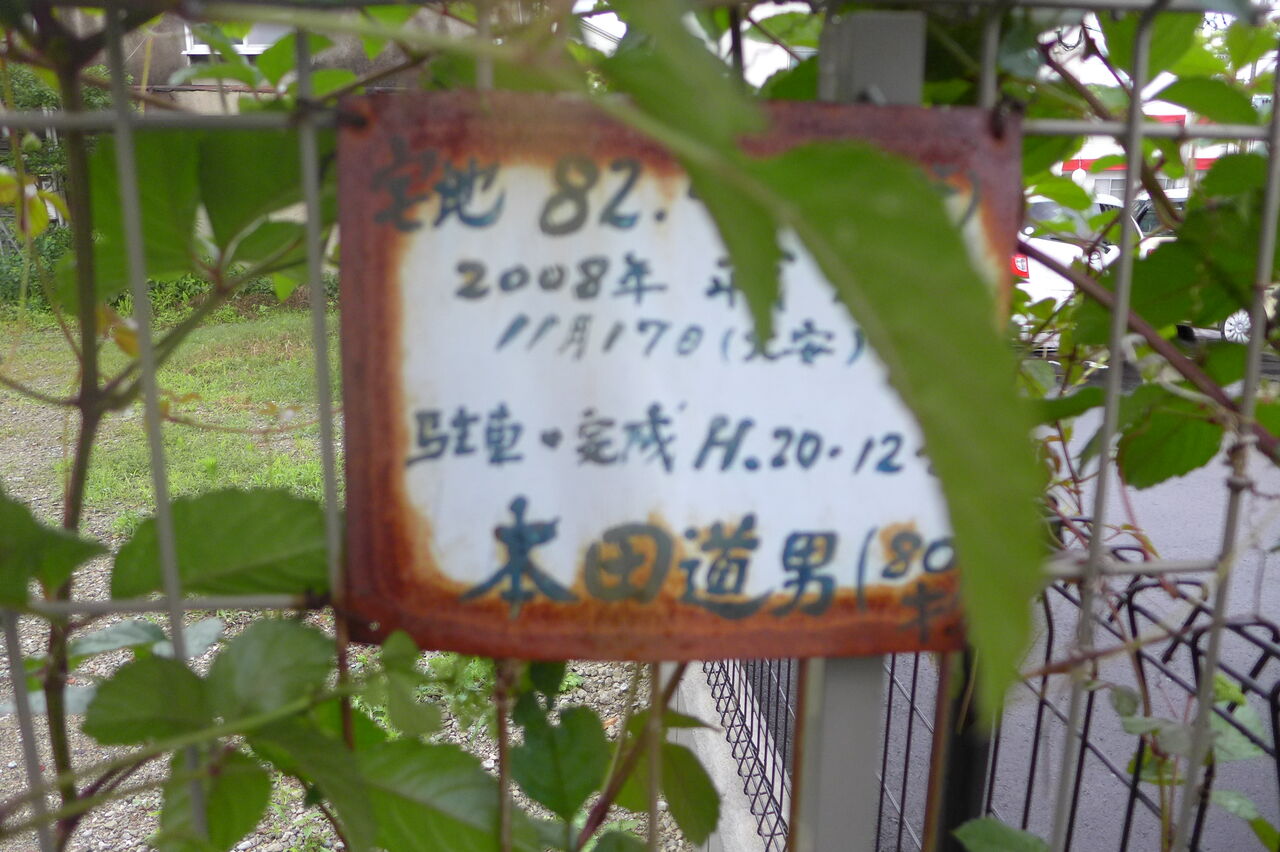 宅地 82.
2008年 平
11月17日(大安)
駐車・完成 H.20・12・
本田道男(80
才